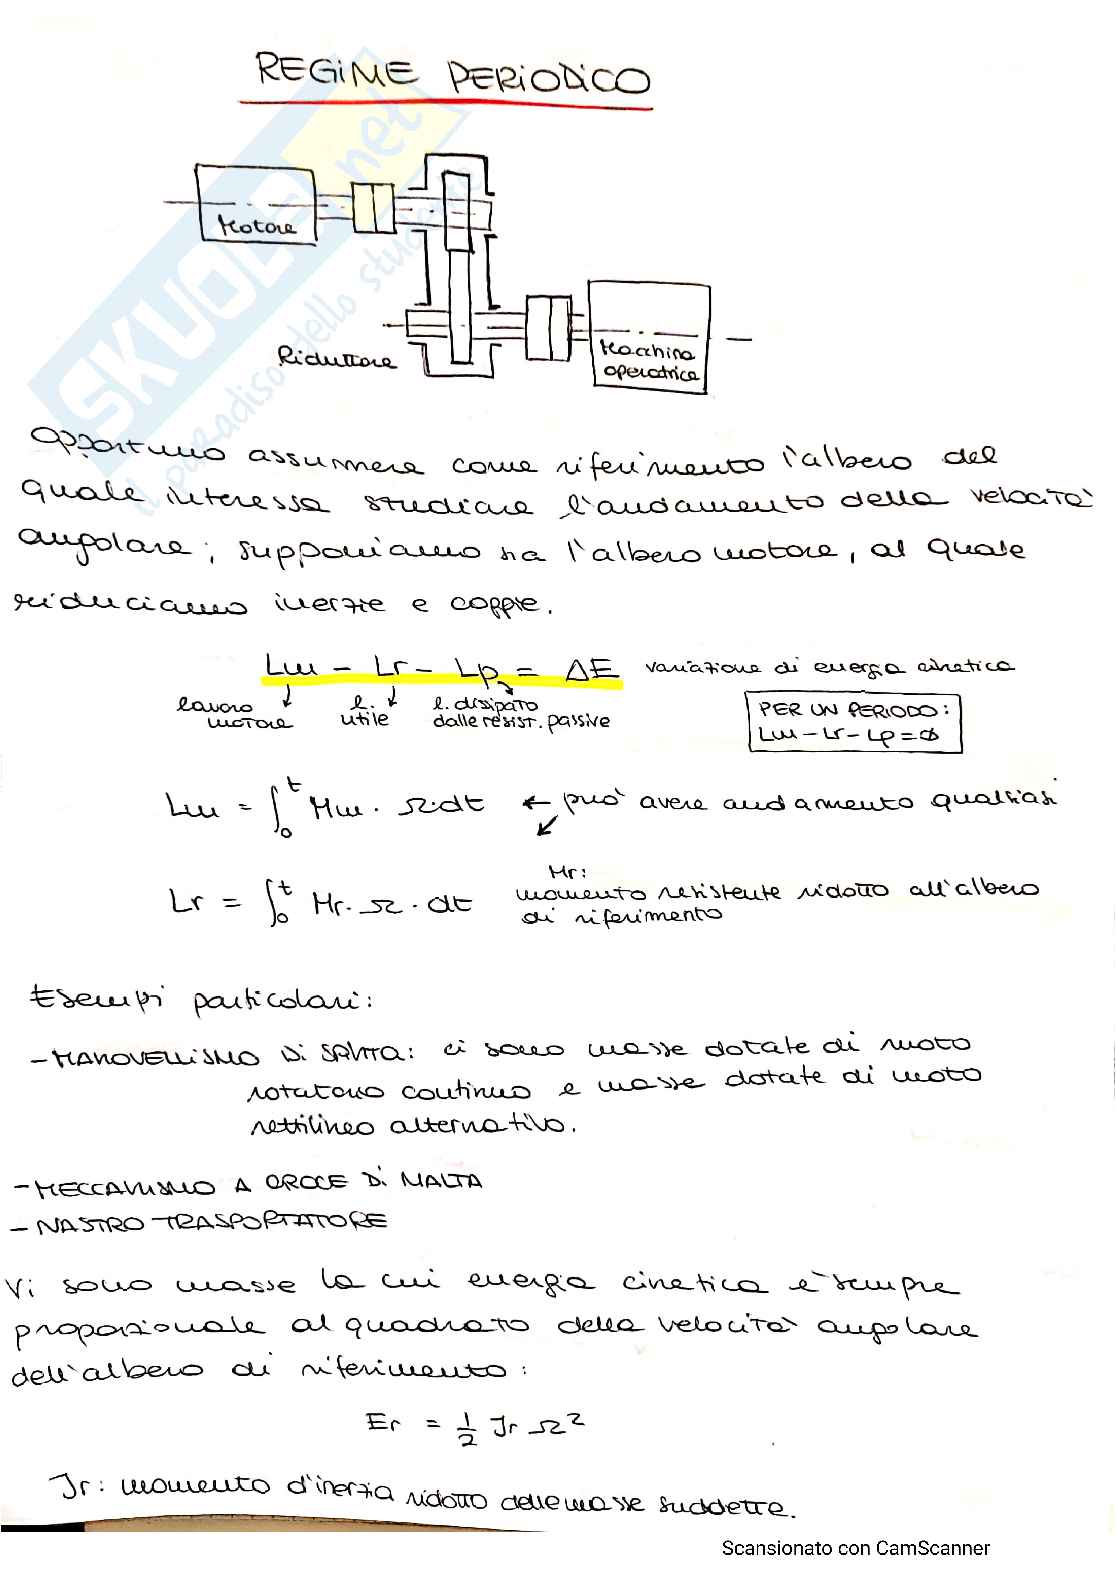 REGIME PERIODICO
SKUOLA.net
il paradiso dello studente
Motore
Riduttore
Macchina
operatrice
Opportuno assumere come riferimento l'albero del
quale interessa studiare l'andamento della velocità
angolare; supponiamo sia l'albero motore, al quale
riduciamo inerzie e coppie.
Lm - Lr - Lp = ΔE variazione di energia cinetica
lavoro motore
l. utile
l. dissipato
dalle resist. passive
PER UN PERIODO:
Lm - Lr - Lp = Ø
Lm = ∫₀ᵗ Mm · Ω · dt ← può avere andamento qualsiasi
Mr:
Lr = ∫₀ᵗ Mr · Ω · dt momento resistente ridotto all'albero
di riferimento
Esempi particolari:
- MANOVELLISMO DI SPINTA: ci sono masse dotate di moto
rotatorio continuo e masse dotate di moto
rettilineo alternativo.
- MECCANISMO A CROCE DI MALTA
- NASTRO TRASPORTATORE
Vi sono masse la cui energia cinetica è sempre
proporzionale al quadrato della velocità angolare
dell'albero di riferimento:
Er = 1/2 Jr Ω²
Jr: momento d'inerzia ridotto delle masse suddette.
Scansionato con CamScanner